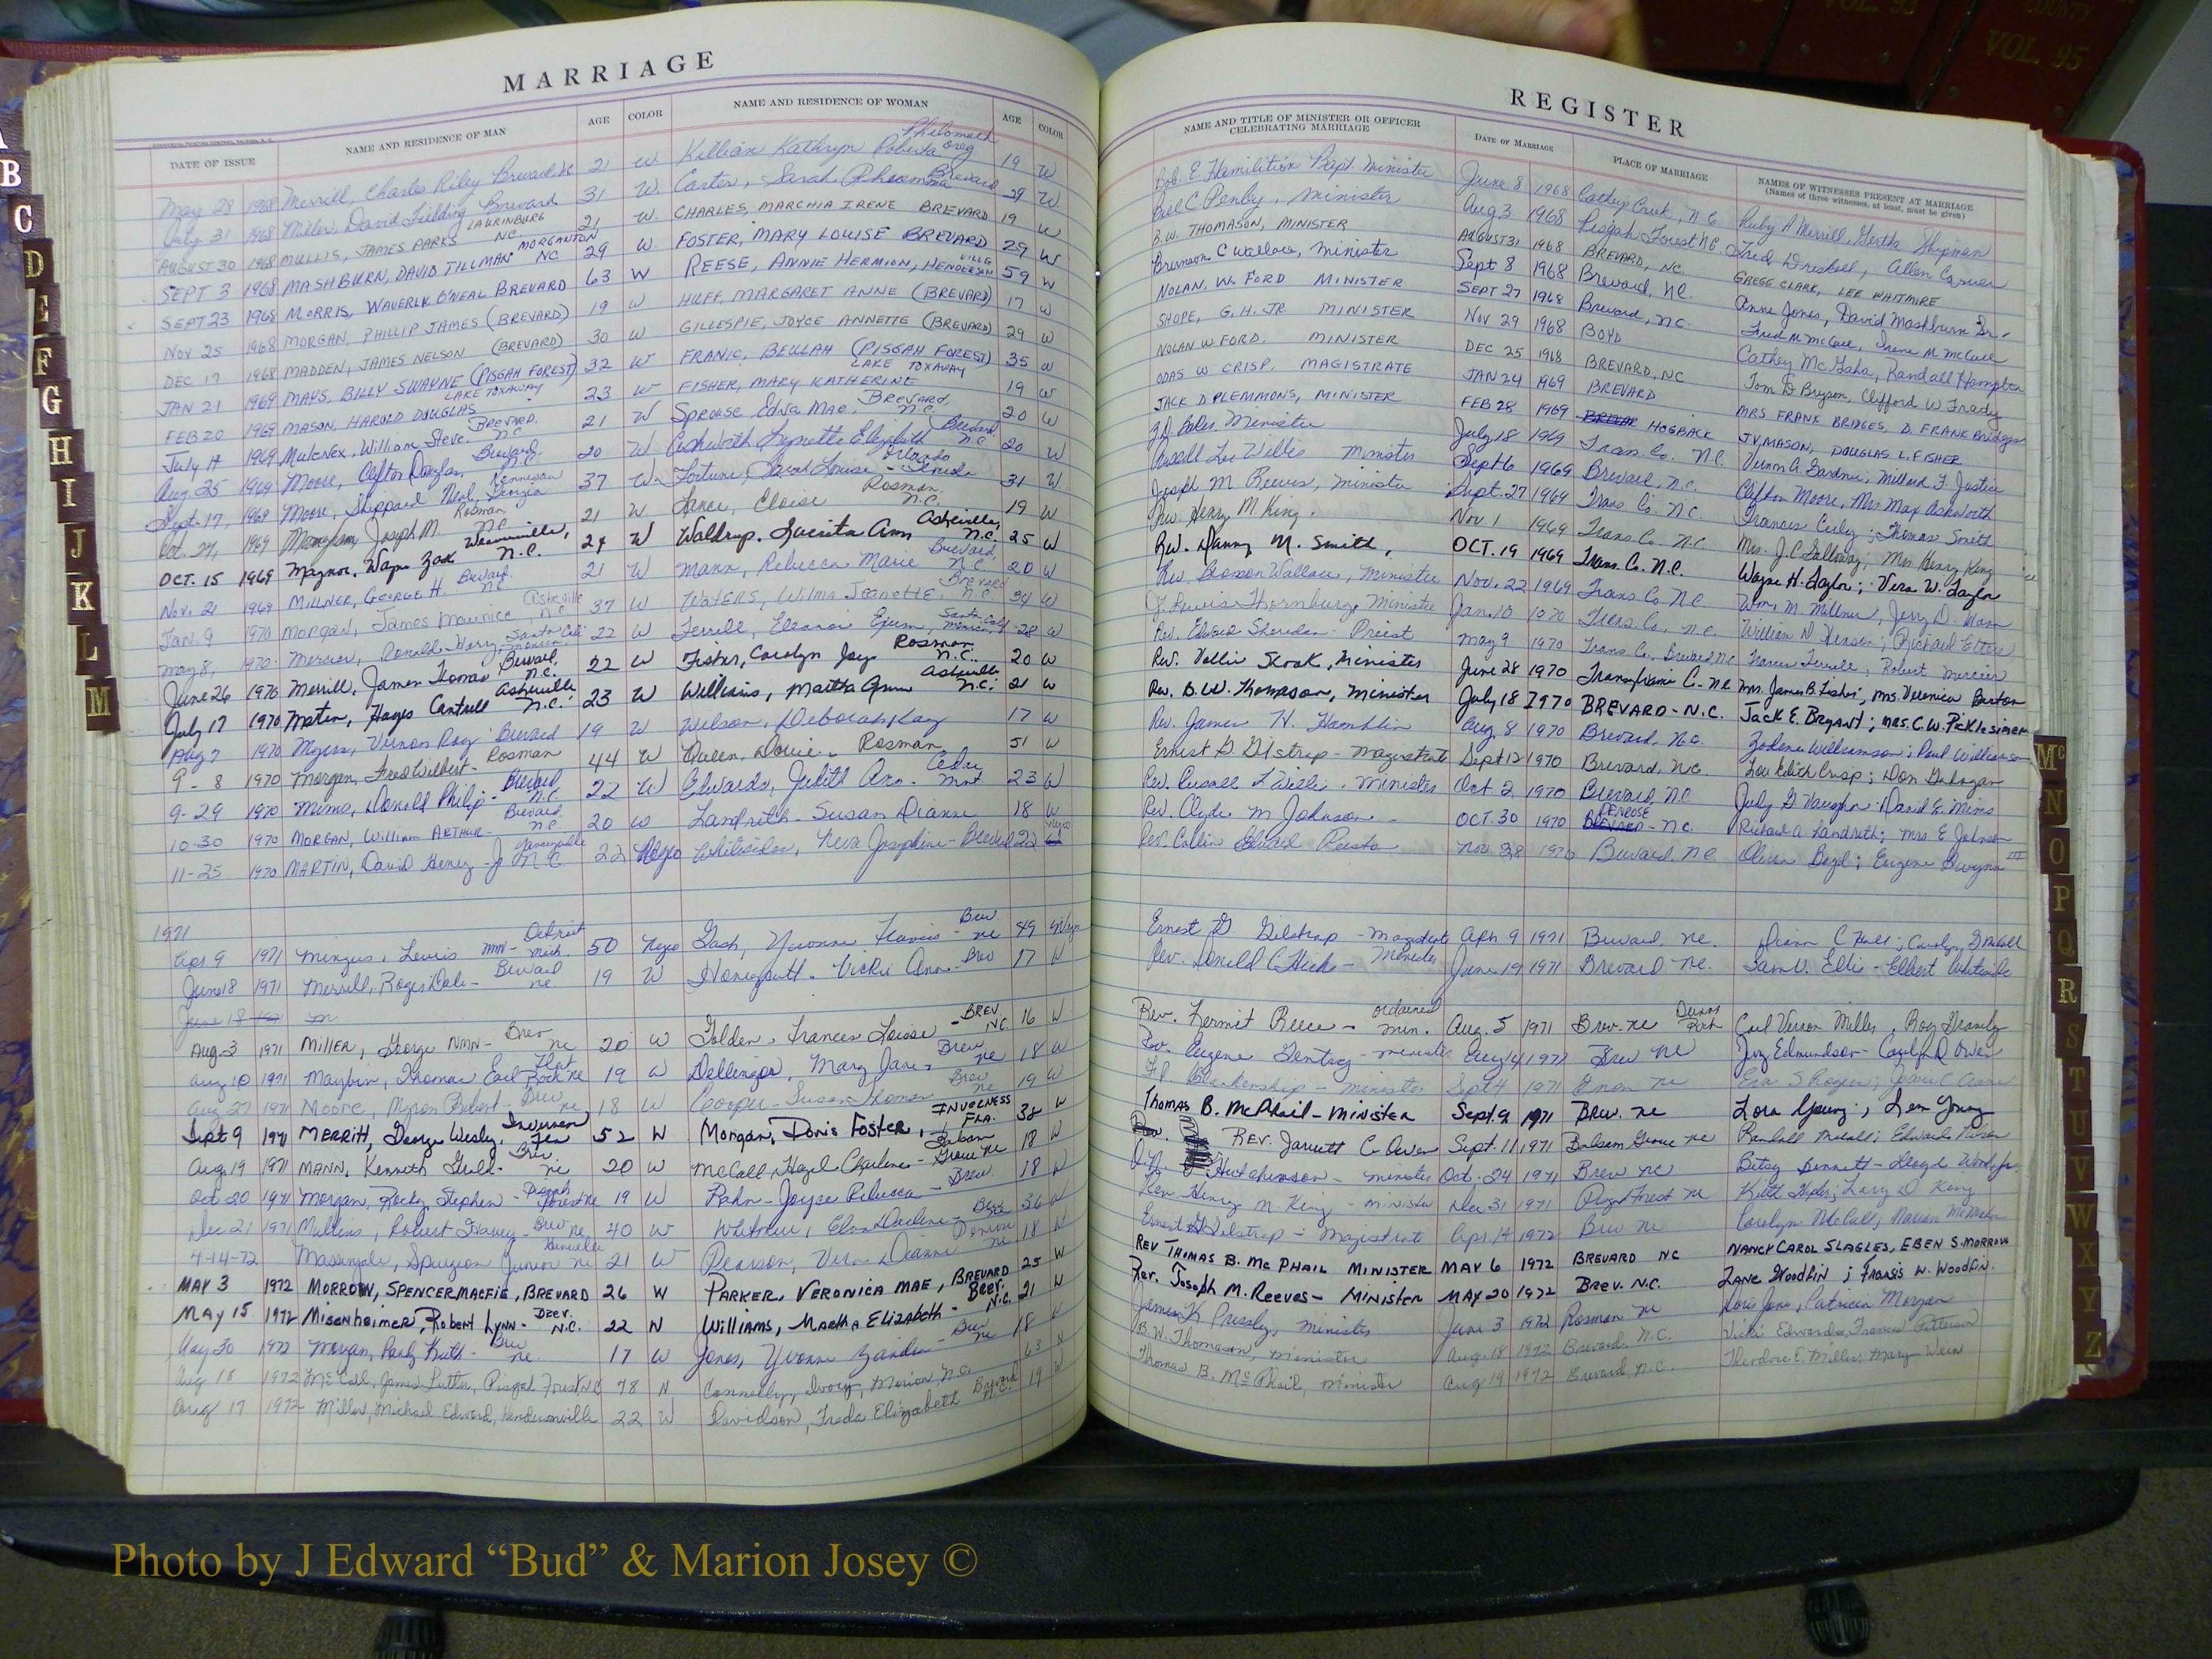 MARRIAGE
DATE OF ISSUE NAME AND RESIDENCE OF MAN AGE COLOR NAME AND RESIDENCE OF WOMAN AGE COLOR
May 28 1968 Merrill, Charles Riley Brevard NC 21 W Killian Kathryn Roberta Philomath Oreg 19 W
July 31 1968 Miller, David Fielding Brevard 31 W. Carter, Sarah Brevard 29 W
AUGUST 30 1968 MULLIS, JAMES PARKS LAURINBURG NC. 21 W. CHARLES, MARCHIA IRENE BREVARD 19 W
SEPT 3 1968 MASHBURN, DAVID TILLMAN MORGANTON NC 29 W. FOSTER, MARY LOUISE BREVARD 29 W
SEPT 23 1968 MORRIS, WAVERLY O'NEAL BREVARD 63 W REESE, ANNIE HERMION, HENDERSONVILLE 59 W
NOV 25 1968 MORGAN, PHILLIP JAMES (BREVARD) 19 W HUFF, MARGARET ANNE (BREVARD) 17 W
DEC 17 1968 MADDEN, JAMES NELSON (BREVARD) 30 W GILLESPIE, JOYCE ANNETTE (BREVARD) 29 W
JAN 21 1969 MAYS, BILLY SWAYNE (PISGAH FOREST) 32 W BEULAH (PISGAH FOREST) 35 W
FEB 20 1969 MASON, HAROLD DOUGLAS LAKE TOXAWAY 23 W FISHER, MARY KATHERINE LAKE TOXAWAY 19 W
July 1969 William Steve. Brevard. N.C. 21 W Sprouse, Edna Mae, Brevard, N.C. 20 W
Aug. 25 1969 Moore, Clifton Brevard N.C. 20 W Ashworth Lynette Elizabeth Brevard N.C. 20 W
Sept. 17, 1969 Moore, Sheppard Neal, Kennesaw Georgia 37 W. Fortune, Sarah Louise - Orlando Florida 31 W
Oct. 27, 1969 Joseph M. Rosman NC 21 W Lance, Eloise Rosman. N.C. 19 W
OCT. 15 1969 Maynor, Wayne Zack Weaverville, N.C. 24 W Waldrop, Lucritia Ann Asheville, N.C. 25 W
Nov. 21 1969 MILLNER, GEORGE H. Brevard. NC 21 W Mann, Rebecca Marie Brevard NC 20 W
Jan. 9 1970 MORGAN, James Maurice, Asheville N.C. 37 W WATERS, Wilma Jeanette, Brevard N.C. 34 W
May 8, 1970. Mercier, Ronald Harry 22 W Ferrell, Eleanor 28 W
June 26 1970 Merrill, James Thomas Brevard, N.C. 22 W Fisher, Carolyn Joy Rosman N.C. 20 W
July 17 1970 Hayes Cantrell Asheville N.C. 23 W Williams, Martha Ann Asheville N.C. 21 W
Aug 7 1970 Myers, Vernon Ray Brevard 19 W Wilson, Deborah Kay 17 W
9 - 8 1970 Morgan, Fred Wilbert - Rosman 44 W Queen, Rosman 51 W
9-29 1970 Mims, Donald Philip - Brevard N.C. 22 W Edwards, Judith Ann - 23 W
10-30 1970 MORGAN, William ARTHUR - Brevard N.C. 20 W Landreth - Susan Dianne 18 W
11-25 1970 MARTIN, David Henry - Jr N.C. 22 Negro Whitesides, Neva Josephine - Brevard 22 Negro
1971
Apr 9 1971 Mingus, Lewis NMN - Detroit Mich. 50 Negro Gash, Yvonne Francis - Brev. NC 49 Negro
June 18 1971 Merrill, Roger Dale - Brevard NC 19 W Honeycutt - Vickie Ann - Brev 17 W
June 18 1971 M
Aug. 3 1971 MILLER, George NMN - Brev NC 20 W Golden, Frances Louise - BREV NC. 16 W
Aug 10 1971 Maybin, Thomas Earl Flat Rock NC 19 W Dellinger, Mary Jane - Brev NC 18 W
Aug 27 1971 Moore, Myron Robert - Brev NC 18 W Cooper - Susan Brev NC 19 W
Sept 9 1971 MERRITT, George Wesley, Inverness Fla 52 W Morgan, Doris Foster, INVERNESS FLA. 38 W
Aug 19 1971 MANN, Kenneth Brev. NC 20 W McCall, Hazel Charlene - Balsam Grove NC 18 W
Oct 20 1971 Morgan, Rocky Stephen - Pisgah Forest NC 19 W Rahn - Joyce Rebecca - Brev 18 W
Dec 21 1971 Mullins, Robert Brev NC 40 W Whitmire, 36 W
4-14-72 Massingale, Spurgeon Junior 21 W Pearson, Vera Dianne Penrose NC 18 W
MAY 3 1972 MORROW, SPENCER MACFIE, BREVARD 26 W PARKER, VERONICA MAE, BREVARD 25 W
MAY 15 1972 Misenheimer, Robert Lynn - Brev. N.C. 22 W Williams, Martha Elizabeth - Brev. N.C. 21 W
May 30 1972 Morgan, Randy Keith - Brev NC. 17 W Jones, Yvonne Brev NC 18 W
Aug 18 1972 McCall, James Luther, Pisgah Forest NC 78 N Connelly, Ivory, Marion N.C. 63 N
Aug 17 1972 Miller, Michael Edward, Hendersonville 22 W Davidson, Freda Elizabeth Brevard N.C. 19 W
REGISTER
NAME AND TITLE OF MINISTER OR OFFICER CELEBRATING MARRIAGE DATE OF MARRIAGE PLACE OF MARRIAGE NAMES OF WITNESSES PRESENT AT MARRIAGE
(Names of three witnesses, at least, must be given)
Bob. E. Hamilition Bapt. Minister June 8 1968 Cathey Creek, N.C. Ruby A Merrill, Gertha Shipman
Bill C Penley, Minister Aug 3 1968 Pisgah Forest NC. Fred Driskell, Allen Carver
B.W. THOMASON, MINISTER AUGUST 31 1968 BREVARD, NC. GREGG CLARK, LEE WHITMIRE
Brunson C Wallace, Minister Sept 8 1968 Brevard, NC. Anne Jones, David Mashburn Sr.
NOLAN, W. FORD MINISTER SEPT 27 1968 Brevard, N.C. Fred M McCall, Irene M McCall
SHOPE, G. H. JR. MINISTER NOV 29 1968 BOYD Cathey McGaha, Randall Hampton
NOLAN W FORD. MINISTER DEC 25 1968 BREVARD, NC Tom D Bryson, Clifford W Frady
ODAS W CRISP, MAGISTRATE JAN 24 1969 BREVARD MRS FRANK BRIDGES, D. FRANK Bridges
JACK D PLEMMONS, MINISTER FEB 28 1969 BREVAR HOGBACK J.V. MASON, DOUGLAS L. FISHER
Minister July 18 1969 Trans. Co. N.C. Vernon A. Gardner; Millard F. Justice
Russell Lee Minister Sept 6 1969 Brevard, N.C. Clifton Moore, Mrs Max Ashworth
Joseph M. Reeves, Minister Sept. 27 1969 Trans. Co. N.C. Francis Thomas Smith
Rev. Henry M. King. Nov 1 1969 Trans. Co. N.C. Mrs. J.C. Galloway; Mrs Henry King
Rev. Danny M. Smith, OCT. 19 1969 Trans. Co. N.C. Wayne H. Taylor; Vera W. Taylor
Rev. Wallace, Minister Nov. 22 1969 Trans. Co N.C. Wm. M. Millner, Jerry D. Mann
J. Lewis Thornburg, Minister Jan. 10 1970 Trans. Co., N.C. William D. Henson; Richard
Rev. Edward Sheridan - Priest May 9 1970 Trans. Co., Brevard, NC Ferrell; Robert Mercier
Rev. Vollie Minister June 28 1970 Transylvania C - NC Mrs. James B. Fisher; Mrs. Veronica Barton
Rev. B.W. Thomason, Minister July 18 1970 BREVARD - N.C. Jack E. Bryant; MRS. C.W. Picklesimer
Rev. James H. Hamblin Aug 8 1970 Brevard, N.C. Williamson; Paul Williamson
Ernest G Gilstrap - Magistrate Sept 12 1970 Brevard, NC Lou Edith Crisp; Don Gahagan
Rev. Russell L Minister Oct 2 1970 Brevard, NC Judy G Vaughn David E. Mims
Rev. Clyde M Johnson - OCT. 30 1970 BREVARD PENROSE - NC. Richard A Landreth; Mrs. E Johnson
Rev. Nov 28 1970 Brevard NC Boyd; Eugene III
Ernest G Gilstrap - Magistrate Apr. 9 1971 Brevard, NC. C Hall; Carolyn
Rev. Donald Minister June 19 1971 Brevard NC. Sam V. Ellis - Elbert Whiteside
Rev. Kermit Reece - ordained min. Aug. 5 1971 Brev. NC Dunns Rock Carl Vernon Miller, Roy
Rev. Eugene Gentry - Minister Aug 14 1971 Brev NC Edmundson - Carolyn D Owen
Blankenship - Minister Sept 4 1971 Enon NC
THOMAS B. McPhail - Minister Sept. 9 1971 Brev. NC Lora Young; Young
Rev. REV. Jarrett C. Owen Sept. 11 1971 Balsam Grove NC Randall McCall; Edward
Hutchinson - minister Oct. 24 1971 Brev NC Betsy Bennett - Lloyd
Rev. Henry M King - minister Dec 31 1971 Pisgah Forest NC Larry D King
Ernest G Gilstrap - Magistrate Apr 14 1972 Brev NC Carolyn McCall, Marion
REV THOMAS B. MC PHAIL MINISTER MAY 6 1972 BREVARD NC NANCY CAROL SLAGLES, EBEN S. MORROW
Rev. Joseph M. Reeves - MINISTER MAY 20 1972 BREV. N.C. Zane Woodfin; Francis W. Woodfin.
James K Pressley, minister June 3 1972 Rosman NC Patricia Morgan
B.W. Thomason, minister Aug. 18 1972 Brevard, N.C. Vicki Edwards, Patterson
Thomas B. McPhail, minister Aug 19 1972 Brevard, N.C. Theodore E. Miller, Mary
B
C
D
E
F
G
H
I
J
K
L
M
Mc
N
O
P
Q
R
S
T
U
V
W
X
Y
Z
VOL. 93
COUNTY
VOL. 95
Photo by J Edward “Bud” & Marion Josey ©